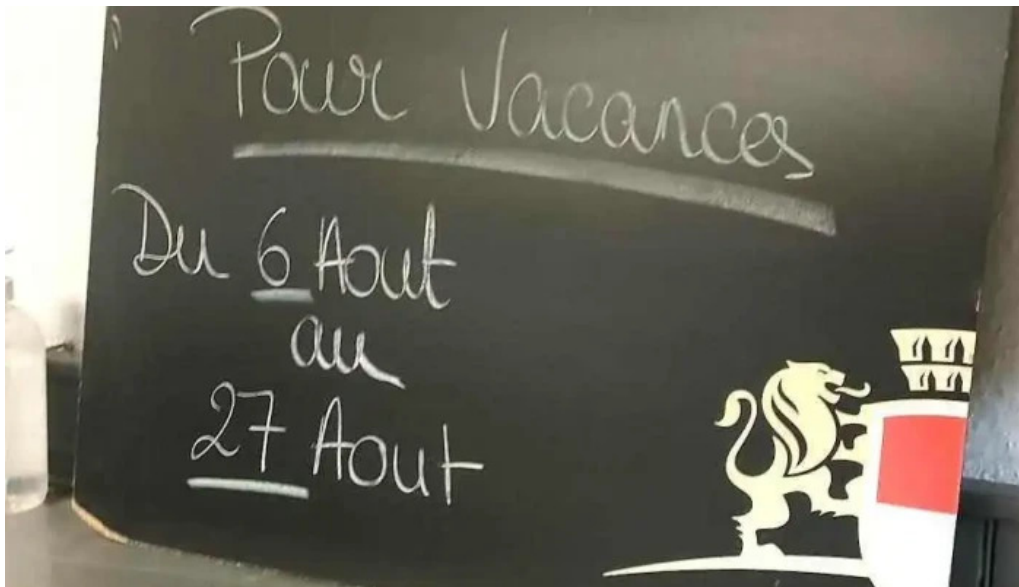 Pour Vacances
Du 6 Aout
au
27 Aout